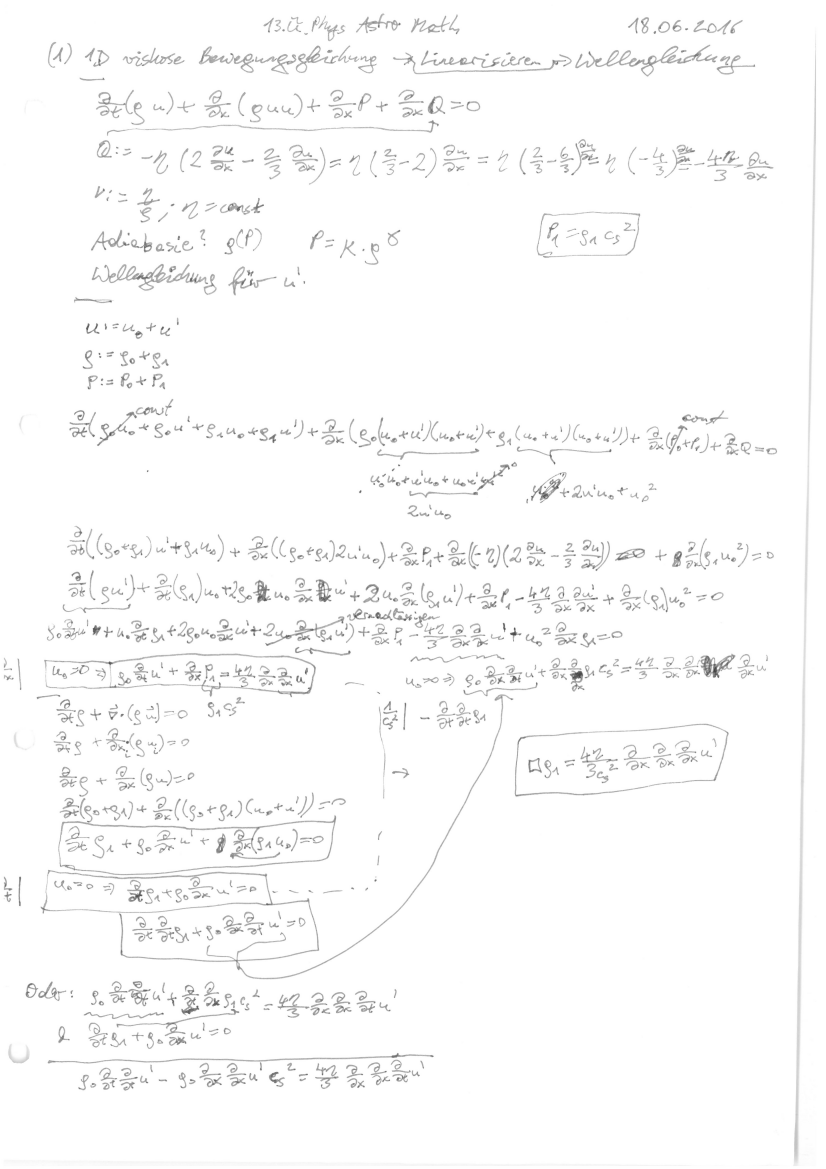 13.Ü. Phys Astro Math 18.06.2016
(1) 1D viskose Bewegungsgleichung → Linearisieren → Wellengleichung
∂/∂t(ρu) + ∂/∂x(ρuu) + ∂/∂x P + ∂/∂x Q = 0
Q := -η (2 ∂u/∂x - 2/3 ∂u/∂x) = η (2/3 - 2) ∂u/∂x = η (2/3 - 6/3) ∂u/∂x = η (-4/3) ∂u/∂x = -4η/3 ∂u/∂x
ν := η/ρ ; η = const
Adiabasie? ρ(P) P = K·ρ^γ P₁ = ρ₁ c_s²
Wellengleichung für u'.
u := u₀ + u'
ρ := ρ₀ + ρ₁
P := P₀ + P₁
const const
∂/∂t(ρ₀u₀ + ρ₀u' + ρ₁u₀ + ρ₁u') + ∂/∂x(ρ₀(u₀+u')(u₀+u') + ρ₁(u₀+u')(u₀+u')) + ∂/∂x(P₀+P₁) + ∂/∂x Q = 0
+ 2u'u₀ + u₀²
2u'u₀
∂/∂t((ρ₀+ρ₁)u' + ρ₁u₀) + ∂/∂x((ρ₀+ρ₁)2u'u₀) + ∂/∂x P₁ + ∂/∂x((-η)(2 ∂u/∂x - 2/3 ∂u/∂x)) + ∂/∂x(ρ₁u₀²) = 0
∂/∂t(ρu') + ∂/∂t(ρ₁)u₀ + 2ρ₀u₀ ∂/∂x u' + 2u₀ ∂/∂x(ρ₁u') + ∂/∂x P₁ - 4η/3 ∂/∂x ∂u'/∂x + ∂/∂x(ρ₁)u₀² = 0
vernachlässigen
ρ₀ ∂/∂t u' + u₀ ∂/∂t ρ₁ + 2ρ₀u₀ ∂/∂x u' + 2u₀ ∂/∂x(ρ₁u') + ∂/∂x P₁ - 4η/3 ∂/∂x ∂/∂x u' + u₀² ∂/∂x ρ₁ = 0
∂/∂x | u₀=0 ⇒ ρ₀ ∂/∂t u' + ∂/∂x P₁ = 4η/3 ∂/∂x ∂/∂x u' u₀=0 ⇒ ρ₀ ∂/∂x ∂/∂t u' + ∂/∂x ∂/∂x ρ₁ c_s² = 4η/3 ∂/∂x ∂/∂x ∂/∂x u'
ρ₁c_s²
∂/∂t ρ + ∇⃗·(ρu⃗) = 0 1/c_s² | - ∂/∂t ∂/∂t ρ₁
∂/∂t ρ + ∂/∂x_i (ρu_i) = 0
→ □ρ₁ = 4η/3c_s² ∂/∂x ∂/∂x ∂/∂x u'
∂/∂t ρ + ∂/∂x (ρu) = 0
∂/∂t(ρ₀+ρ₁) + ∂/∂x((ρ₀+ρ₁)(u₀+u')) = 0
∂/∂t ρ₁ + ρ₀ ∂/∂x u' + ∂/∂x(ρ₁u₀) = 0
∂/∂t | u₀=0 ⇒ ∂/∂t ρ₁ + ρ₀ ∂/∂x u' = 0
∂/∂t ∂/∂t ρ₁ + ρ₀ ∂/∂x ∂/∂t u' = 0
Oder: ρ₀ ∂/∂t ∂/∂t u' + ∂/∂t ∂/∂x ρ₁ c_s² = 4η/3 ∂/∂x ∂/∂x ∂/∂t u'
& ∂/∂t ρ₁ + ρ₀ ∂/∂x u' = 0
ρ₀ ∂/∂t ∂/∂t u' - ρ₀ ∂/∂x ∂/∂x u' c_s² = 4η/3 ∂/∂x ∂/∂x ∂/∂t u'